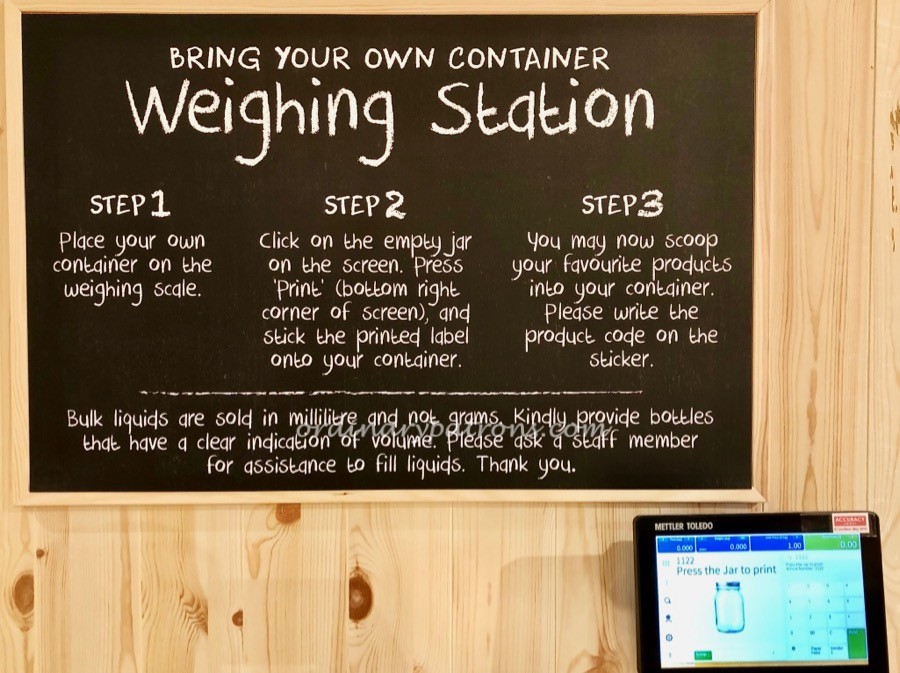 BRING YOUR OWN CONTAINER
Weighing Station
STEP 1
Place your own
container on the
weighing scale.
STEP 2
Click on the empty jar
on the screen. Press
'Print' (bottom right
corner of screen), and
stick the printed label
onto your container.
STEP 3
You may now scoop
your favourite products
into your container.
Please write the
product code on the
sticker.
Bulk liquids are sold in millilitre and not grams. Kindly provide bottles
that have a clear indication of volume. Please ask a staff member
for assistance to fill liquids. Thank you.
ordinarypatrons.com
METTLER TOLEDO
ACCURACY
0.000
0.000
1.00
0.00
1122
Press the Jar to print